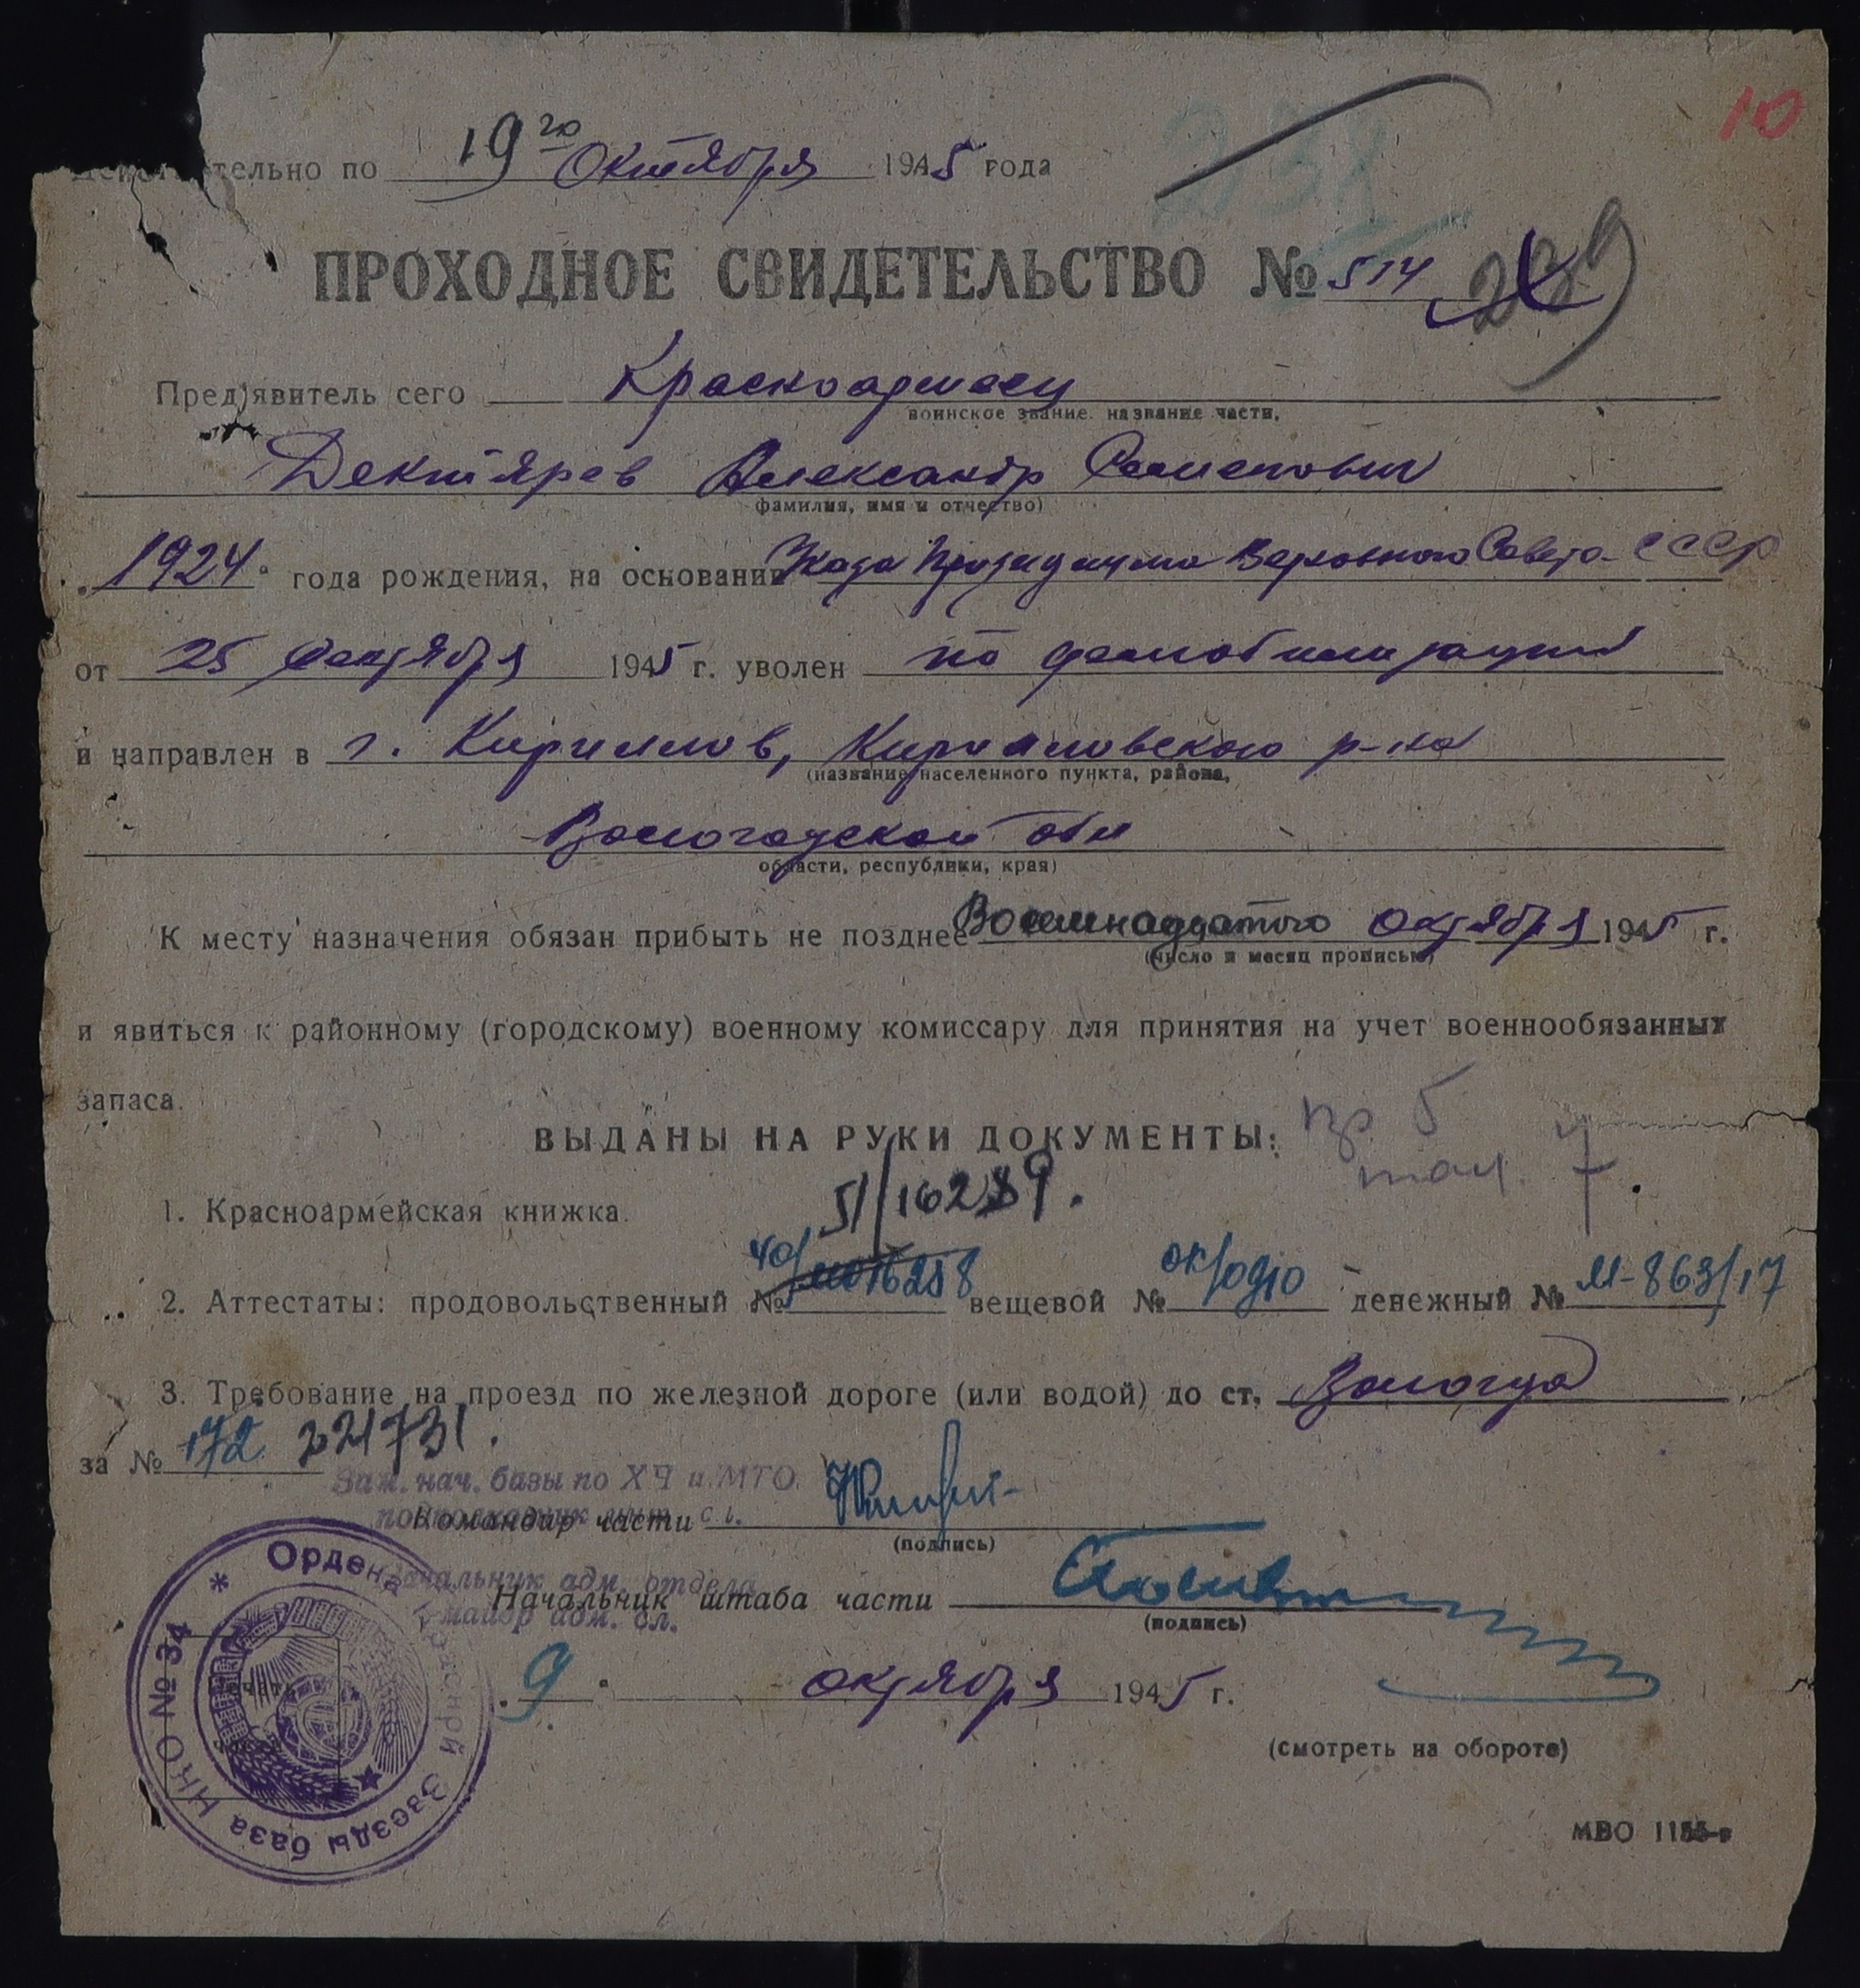 10
тельно по 19го Октября 1945 года
ПРОХОДНОЕ СВИДЕТЕЛЬСТВО № 514
239
Предъявитель сего Красноармеец
воинское звание. название части,
Дектярев Александр Семенович
фамилия, имя и отчество)
"1924" года рождения, на основании Указа Президиума Верховного Совета СССР
от 25 Сентября 1945 г. уволен по демобилизации
и направлен в г. Кириллов, Кирилловского р-на
(название населенного пункта, района,
Вологодской обл
области, республики, края)
К месту назначения обязан прибыть не позднее Восемнадцатого Октября 1945 г.
(число и месяц прописью)
и явиться к районному (городскому) военному комиссару для принятия на учет военнообязанных
запаса.
ВЫДАНЫ НА РУКИ ДОКУМЕНТЫ:
1. Красноармейская книжка.
2. Аттестаты: продовольственный № вещевой № денежный № М-863/17
3. Требование на проезд по железной дороге (или водой) до ст. Вологда
за № 172 221731.
Зам. нач. базы по ХЧ и МТО
Командир части
(подпись)
Начальник адм. отдела
Начальник штаба части
майор адм. сл.
(подпись)
"9" октября 1945 г.
Ордена Красной Звезды база НКО № 34
Печать
части
(смотреть на обороте)
МВО 1155-в